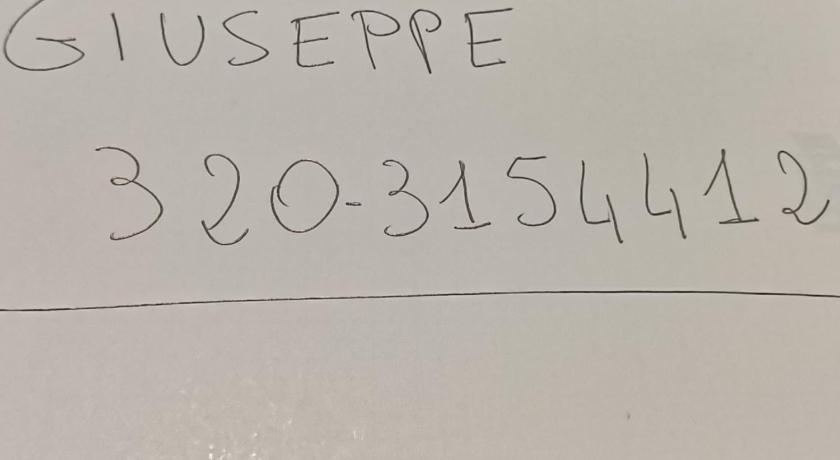 GIUSEPPE
320-3154412